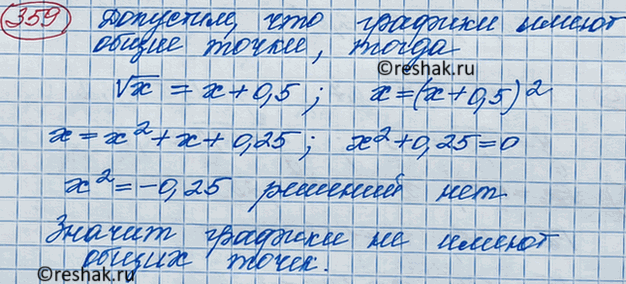 359 Допустим, что графики имеют
общие точки, тогда
©reshak.ru
√x = x + 0,5 ; x = (x + 0,5)²
x = x² + x + 0,25 ; x² + 0,25 = 0
x² = -0,25 решений нет
Значит графики не имеют
общих точек.
©reshak.ru